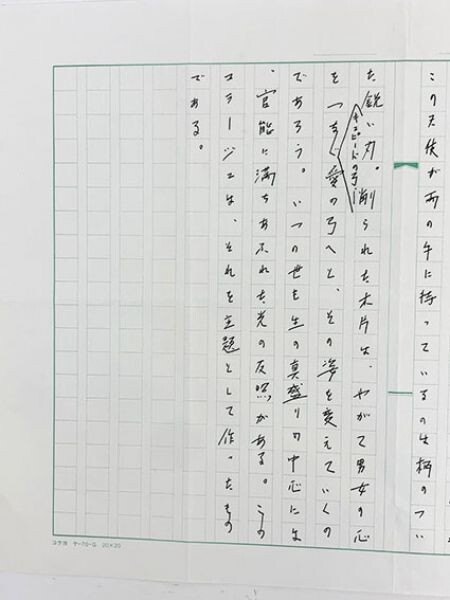 この天使が両の手に持っているのは柄のつい
た鋭い刃。削られた木片は、やがて男女の心
キュピードの弓
をつなぐ愛の弓へと、その姿を変えていくの
であろう。いつの世も生の真盛りの中心には
、官能に満ちあふれた光の反照がある。この
コラージュは、それを主題として作ったもの
である。
コクヨ ケ-70-G 20×20